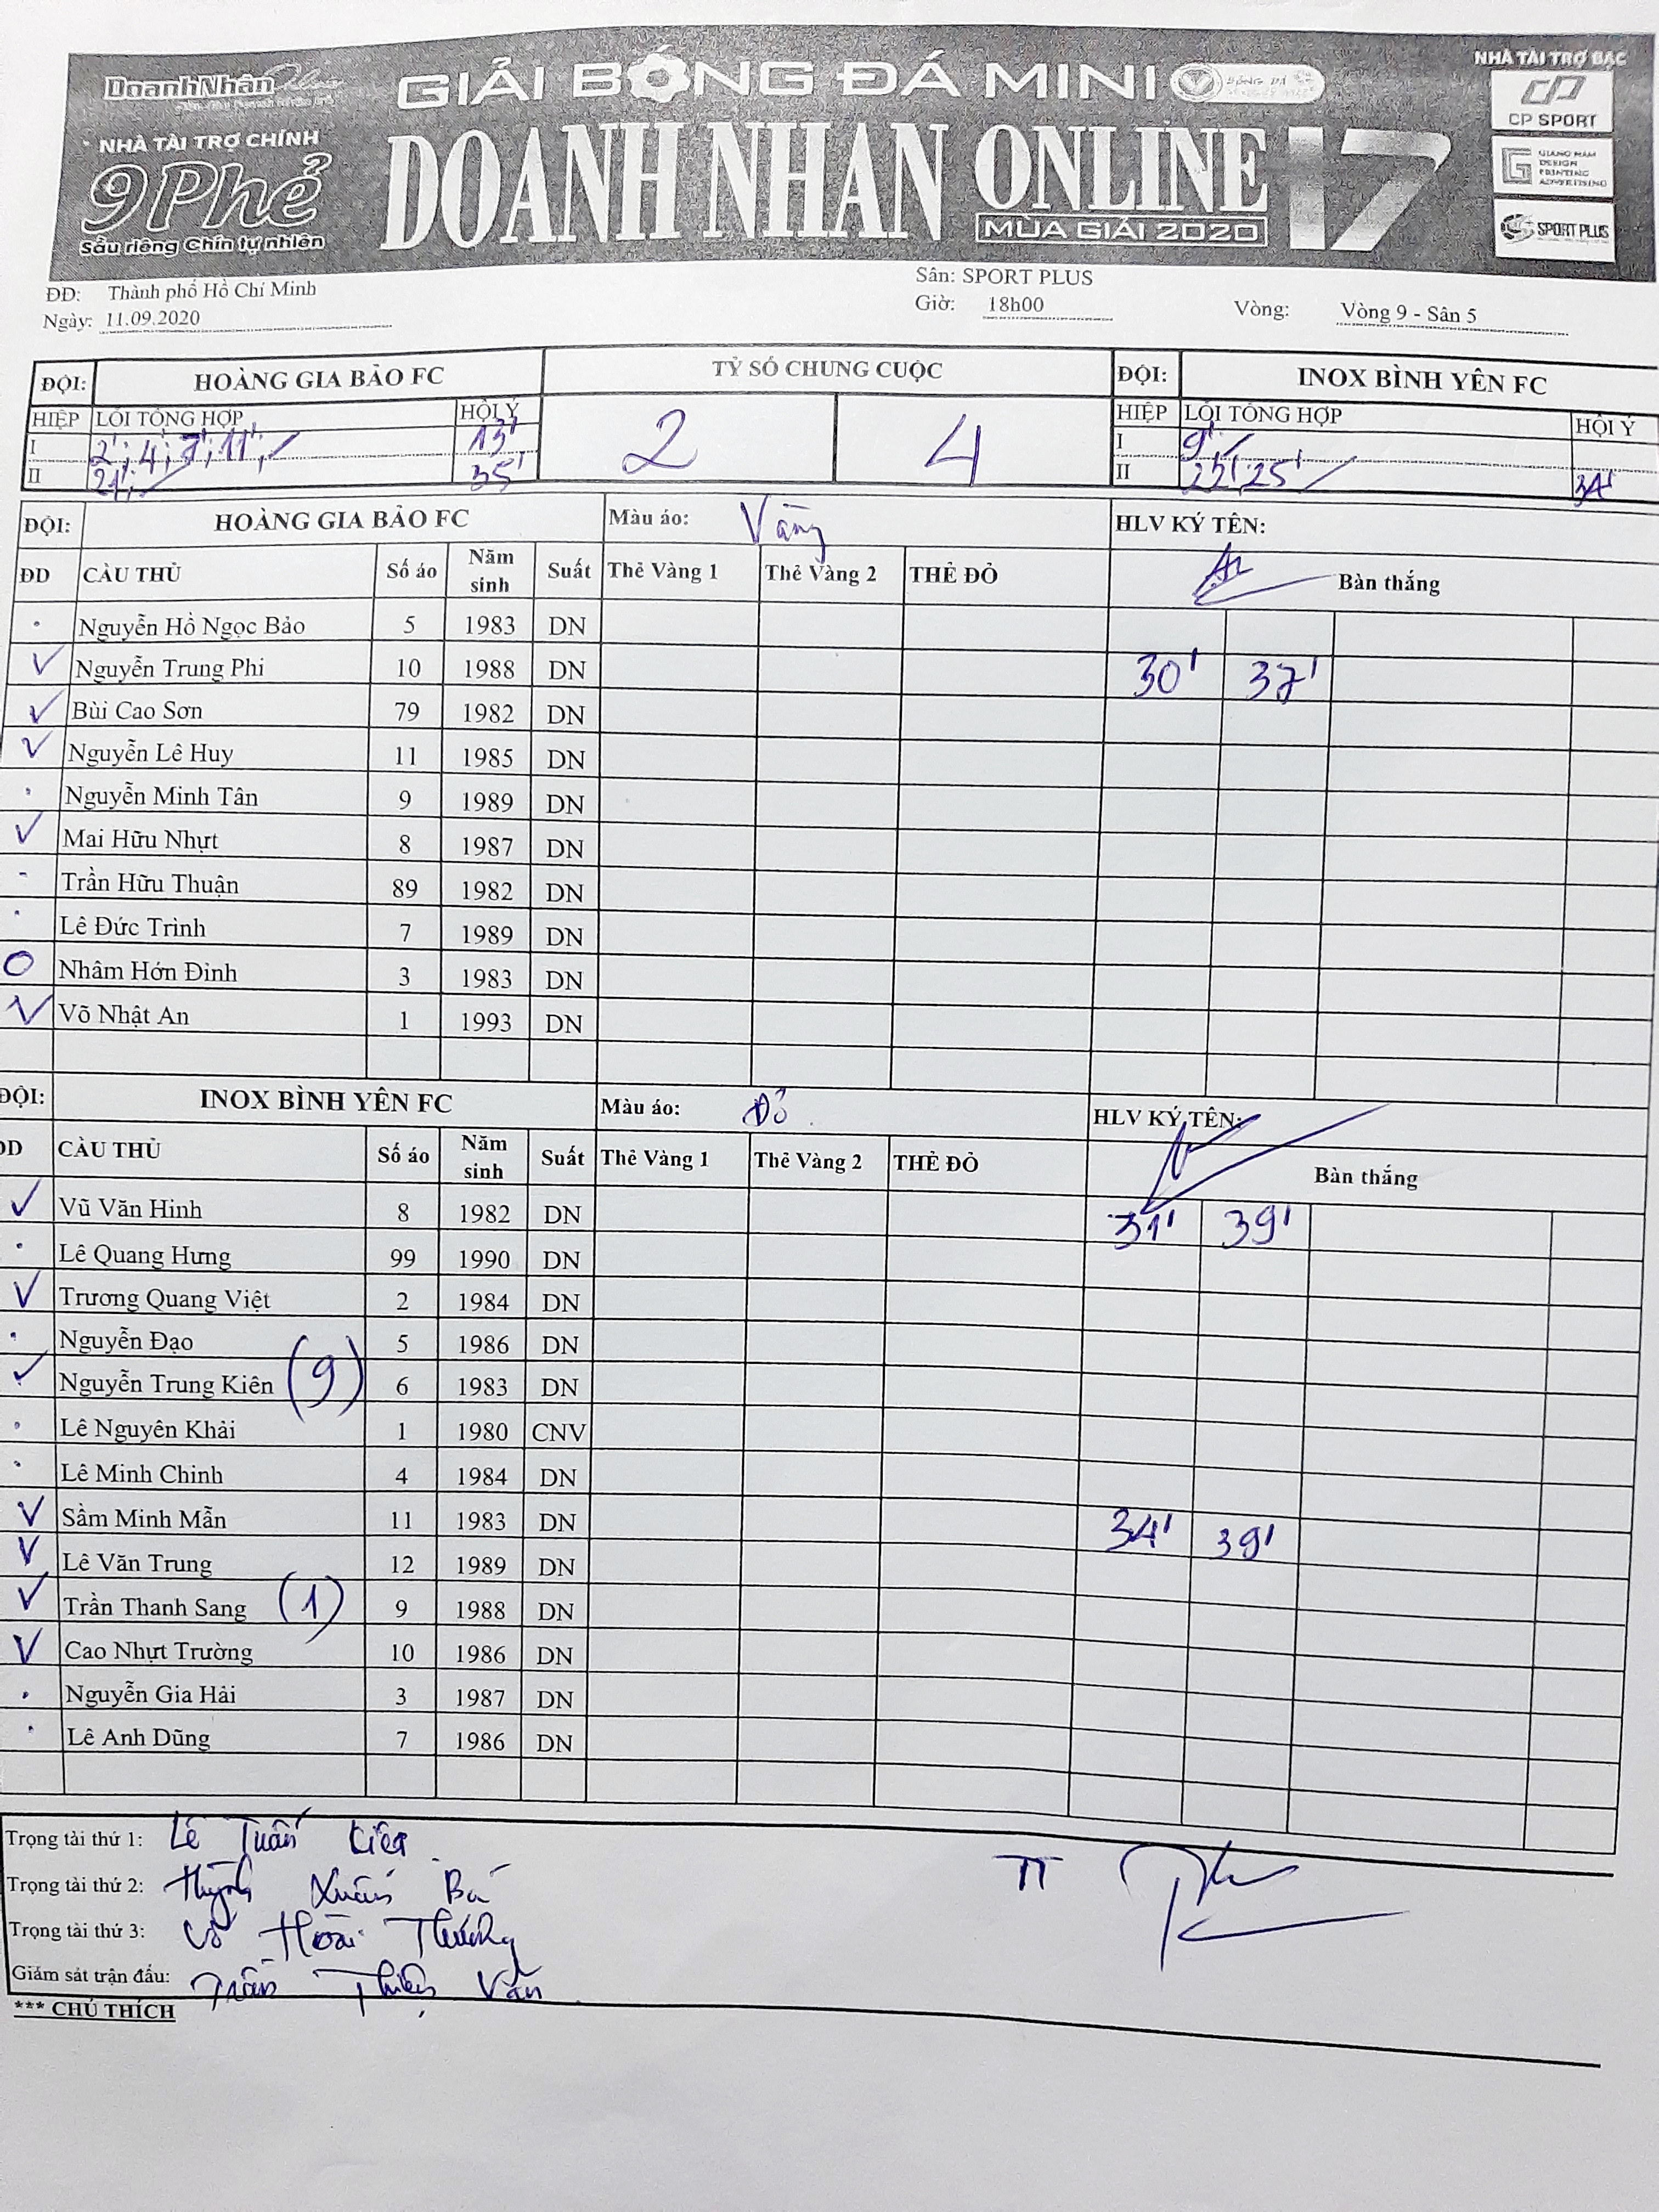 DoanhNhân
GIẢI BÓNG ĐÁ MINI
NHÀ TÀI TRỢ BẠC
CP SPORT
NHÀ TÀI TRỢ CHÍNH
9 Phẻ
Sầu riêng Chín tự nhiên
DOANH NHAN ONLINE 17
MÙA GIẢI 2020
GIANG NAM DESIGN PRINTING ADVERTISING
SPORT PLUS
ĐĐ: Thành phố Hồ Chí Minh Sân: SPORT PLUS
Ngày: 11.09.2020 Giờ: 18h00 Vòng: Vòng 9 - Sân 5
ĐỘI: HOÀNG GIA BẢO FC TỶ SỐ CHUNG CUỘC ĐỘI: INOX BÌNH YÊN FC
HIỆP LỖI TỔNG HỢP HỘI Ý 2 4 HIỆP LỖI TỔNG HỢP HỘI Ý
I 2'; 4'; 7'; 11'; 13' I 9'
II 21'; 35' II 22', 25' 34'
ĐỘI: HOÀNG GIA BẢO FC Màu áo: Vàng HLV KÝ TÊN:
ĐD CẦU THỦ Số áo Năm sinh Suất Thẻ Vàng 1 Thẻ Vàng 2 THẺ ĐỎ Bàn thắng
Nguyễn Hồ Ngọc Bảo 5 1983 DN
V Nguyễn Trung Phi 10 1988 DN 30' 37'
V Bùi Cao Sơn 79 1982 DN
V Nguyễn Lê Huy 11 1985 DN
Nguyễn Minh Tân 9 1989 DN
V Mai Hữu Nhựt 8 1987 DN
Trần Hữu Thuận 89 1982 DN
Lê Đức Trình 7 1989 DN
O Nhâm Hớn Đình 3 1983 DN
V Võ Nhật An 1 1993 DN
ĐỘI: INOX BÌNH YÊN FC Màu áo: Đỏ HLV KÝ TÊN:
ĐD CẦU THỦ Số áo Năm sinh Suất Thẻ Vàng 1 Thẻ Vàng 2 THẺ ĐỎ Bàn thắng
V Vũ Văn Hinh 8 1982 DN 31' 39'
Lê Quang Hưng 99 1990 DN
V Trương Quang Việt 2 1984 DN
Nguyễn Đạo 5 1986 DN
V Nguyễn Trung Kiên (9) 6 1983 DN
Lê Nguyên Khải 1 1980 CNV
Lê Minh Chinh 4 1984 DN
V Sầm Minh Mẫn 11 1983 DN 34' 39'
V Lê Văn Trung 12 1989 DN
V Trần Thanh Sang (1) 9 1988 DN
V Cao Nhựt Trường 10 1986 DN
Nguyễn Gia Hải 3 1987 DN
Lê Anh Dũng 7 1986 DN
Trọng tài thứ 1: Lê Tuấn Kiệt
Trọng tài thứ 2: Huỳnh Xuân Bá
Trọng tài thứ 3: Võ Hoài Thương
Giám sát trận đấu: Trần Thiện Văn
TT
*** CHÚ THÍCH